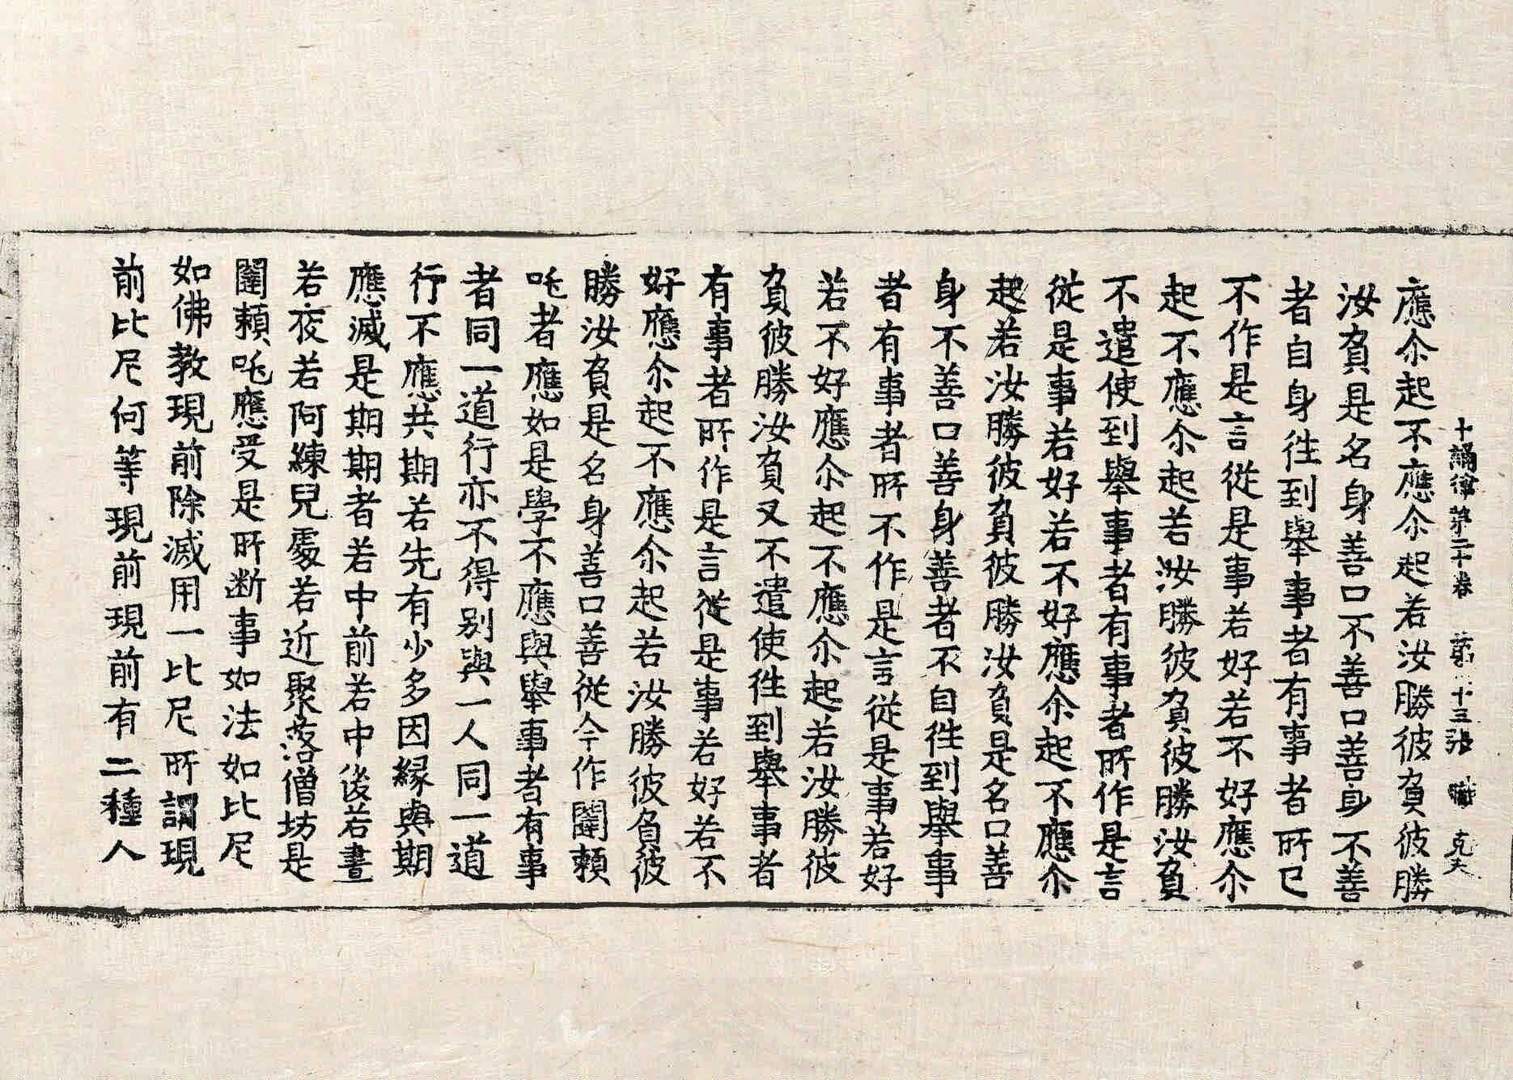 十誦律第二十卷 第二十三張 職 克夫
應尒起不應尒起若汝勝彼負彼勝
汝負是名身善口不善口善身不善
者自身往到舉事者有事者所已
不作是言從是事若好若不好應尒
起不應尒起若汝勝彼負彼勝汝負
不遣使到舉事者有事者所作是言
從是事若好若不好應尒起不應尒
起若汝勝彼負彼勝汝負是名口善
身不善口善身善者不自往到舉事
者有事者所不作是言從是事若好
若不好應尒起不應尒起若汝勝彼
負彼勝汝負又不遣使往到舉事者
有事者所作是言從是事若好若不
好應尒起不應尒起若汝勝彼負彼
勝汝負是名身善口善從今作闥賴
吒者應如是學不應與舉事者有事
者同一道行亦不得别與一人同一道
行不應共期若先有少多因緣與期
應滅是期期者若中前若中後若晝
若夜若阿練兒處若近聚落僧坊是
闥賴吒應受是所断事如法如比尼
如佛教現前除滅用一比尼所謂現
前比尼何等現前現前有二種人